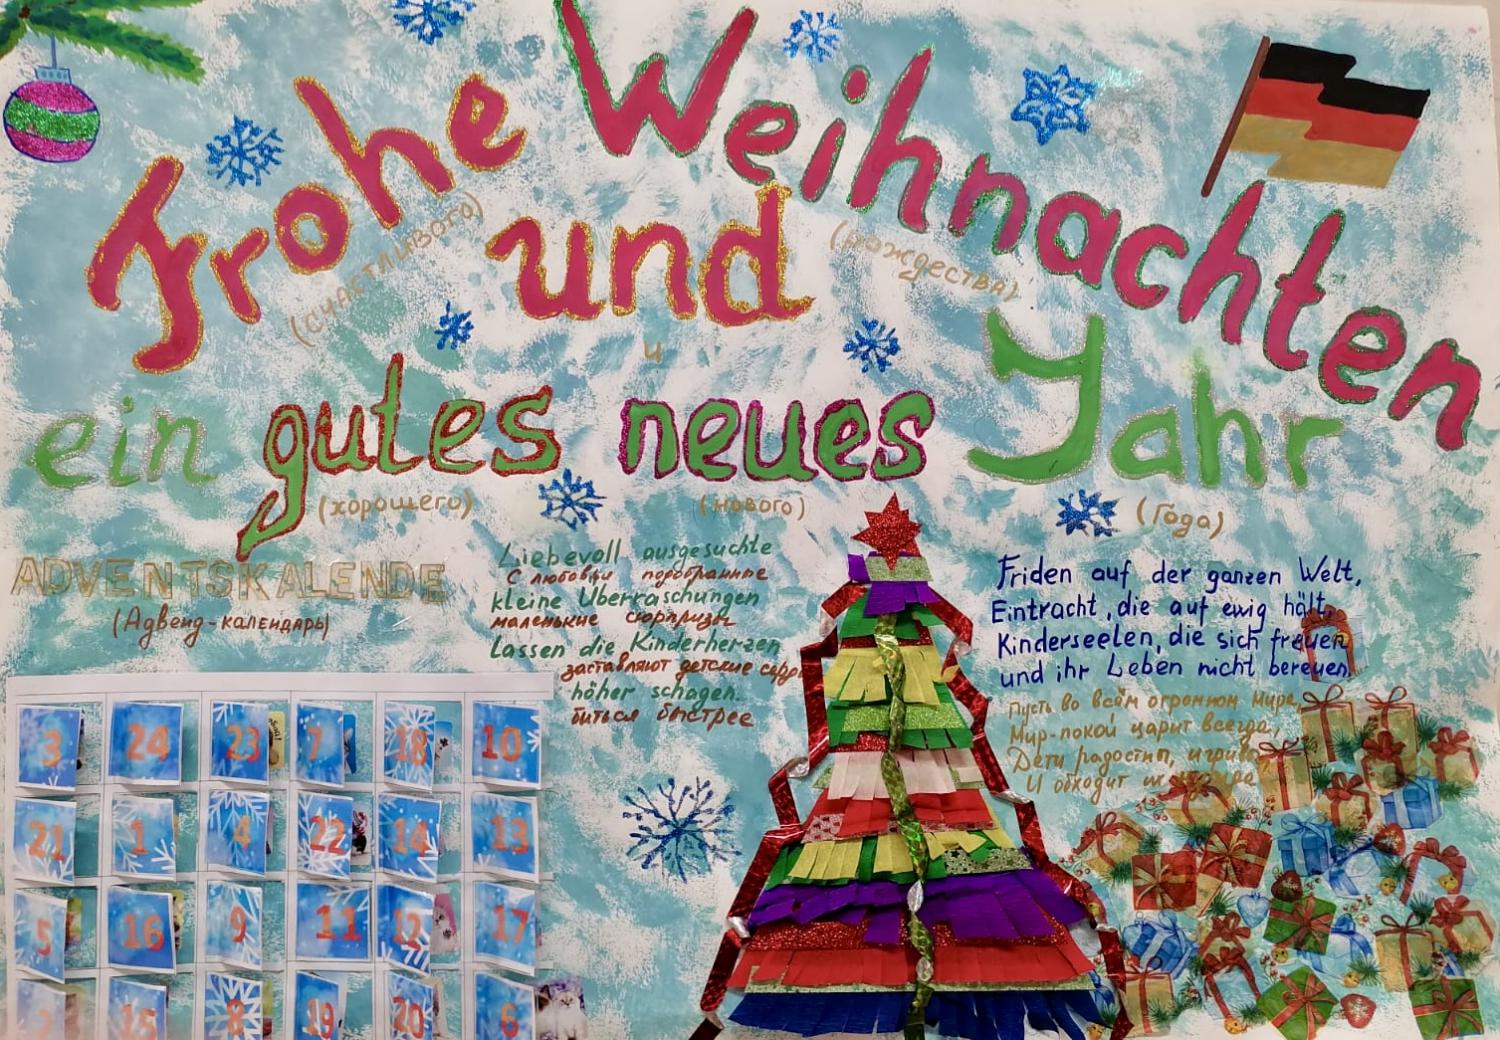 Frohe Weihnachten
(счастливого)
(рождества)
und
и
ein gutes neues Jahr
(хорошего)
(нового)
(Года)
ADVENTSKALENDE
(Адвенд-календарь)
Liebevoll ausgesuchte
С любовьи подобранные
kleine Überraschungen
маленькие сюрпризы
Lassen die Kinderherzen
заставляют детские
höher schagen.
биться быстрее
Friden auf der ganzen Welt,
Eintracht, die auf ewig hält,
Kinderseelen, die sich freuen
und ihr Leben nicht bereuen.
Пусть во всём огромном мире,
Мир-покой царит всегда,
Дети радостны, игривы
И обходит их
3 24 23 7 18 10
21 1 4 22 14 13
5 16 9 11 12 17
2 15 8 19 20 6